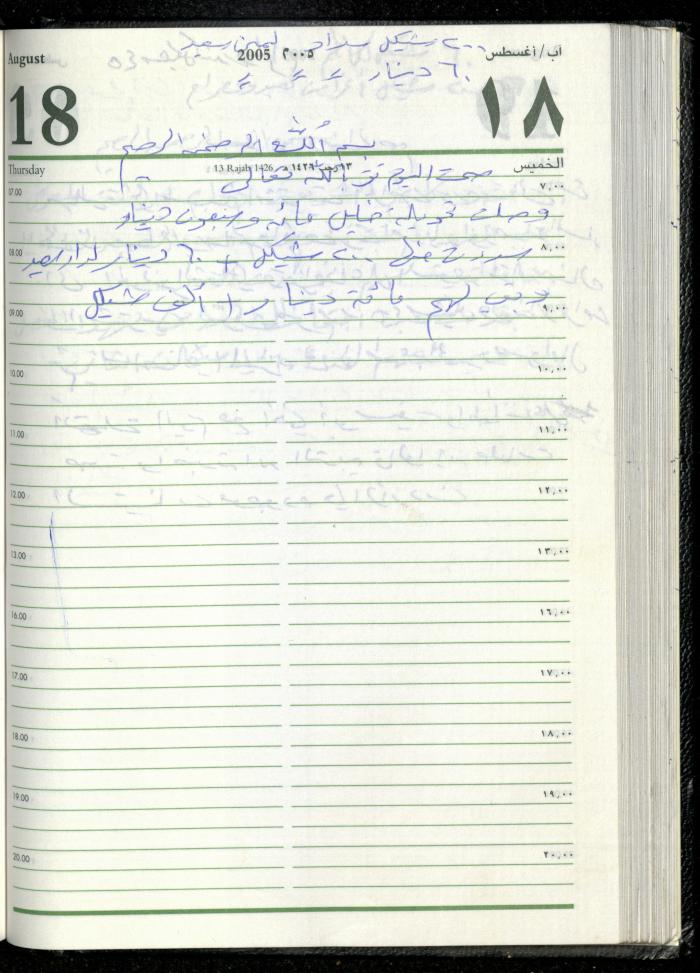 ٢٠٠ شيكل سداد لمين سعيد
August 2005 ٢٠٠٥ آب/أغسطس
٦٠ دينار
18 ١٨
بسم الله الرحمن الرحيم
Thursday 13 Rajab 1426 ١٣ رجب ١٤٢٦ الخميس
صمت اليوم توبة لله تعالى
07.00 ٧,٠٠
وصلت تحويلة خليل مائة وسبعون دينار
08.00 ٨,٠٠
سددت منها ٢٠٠ شيكل + ٦٠ دينار لدار سعيد
وبقي لهم مائة دينار + ألف شيكل
09.00 ٩,٠٠
10.00 ١٠,٠٠
11.00 ١١,٠٠
12.00 ١٢,٠٠
13.00 ١٣,٠٠
16.00 ١٦,٠٠
17.00 ١٧,٠٠
18.00 ١٨,٠٠
19.00 ١٩,٠٠
20.00 ٢٠,٠٠